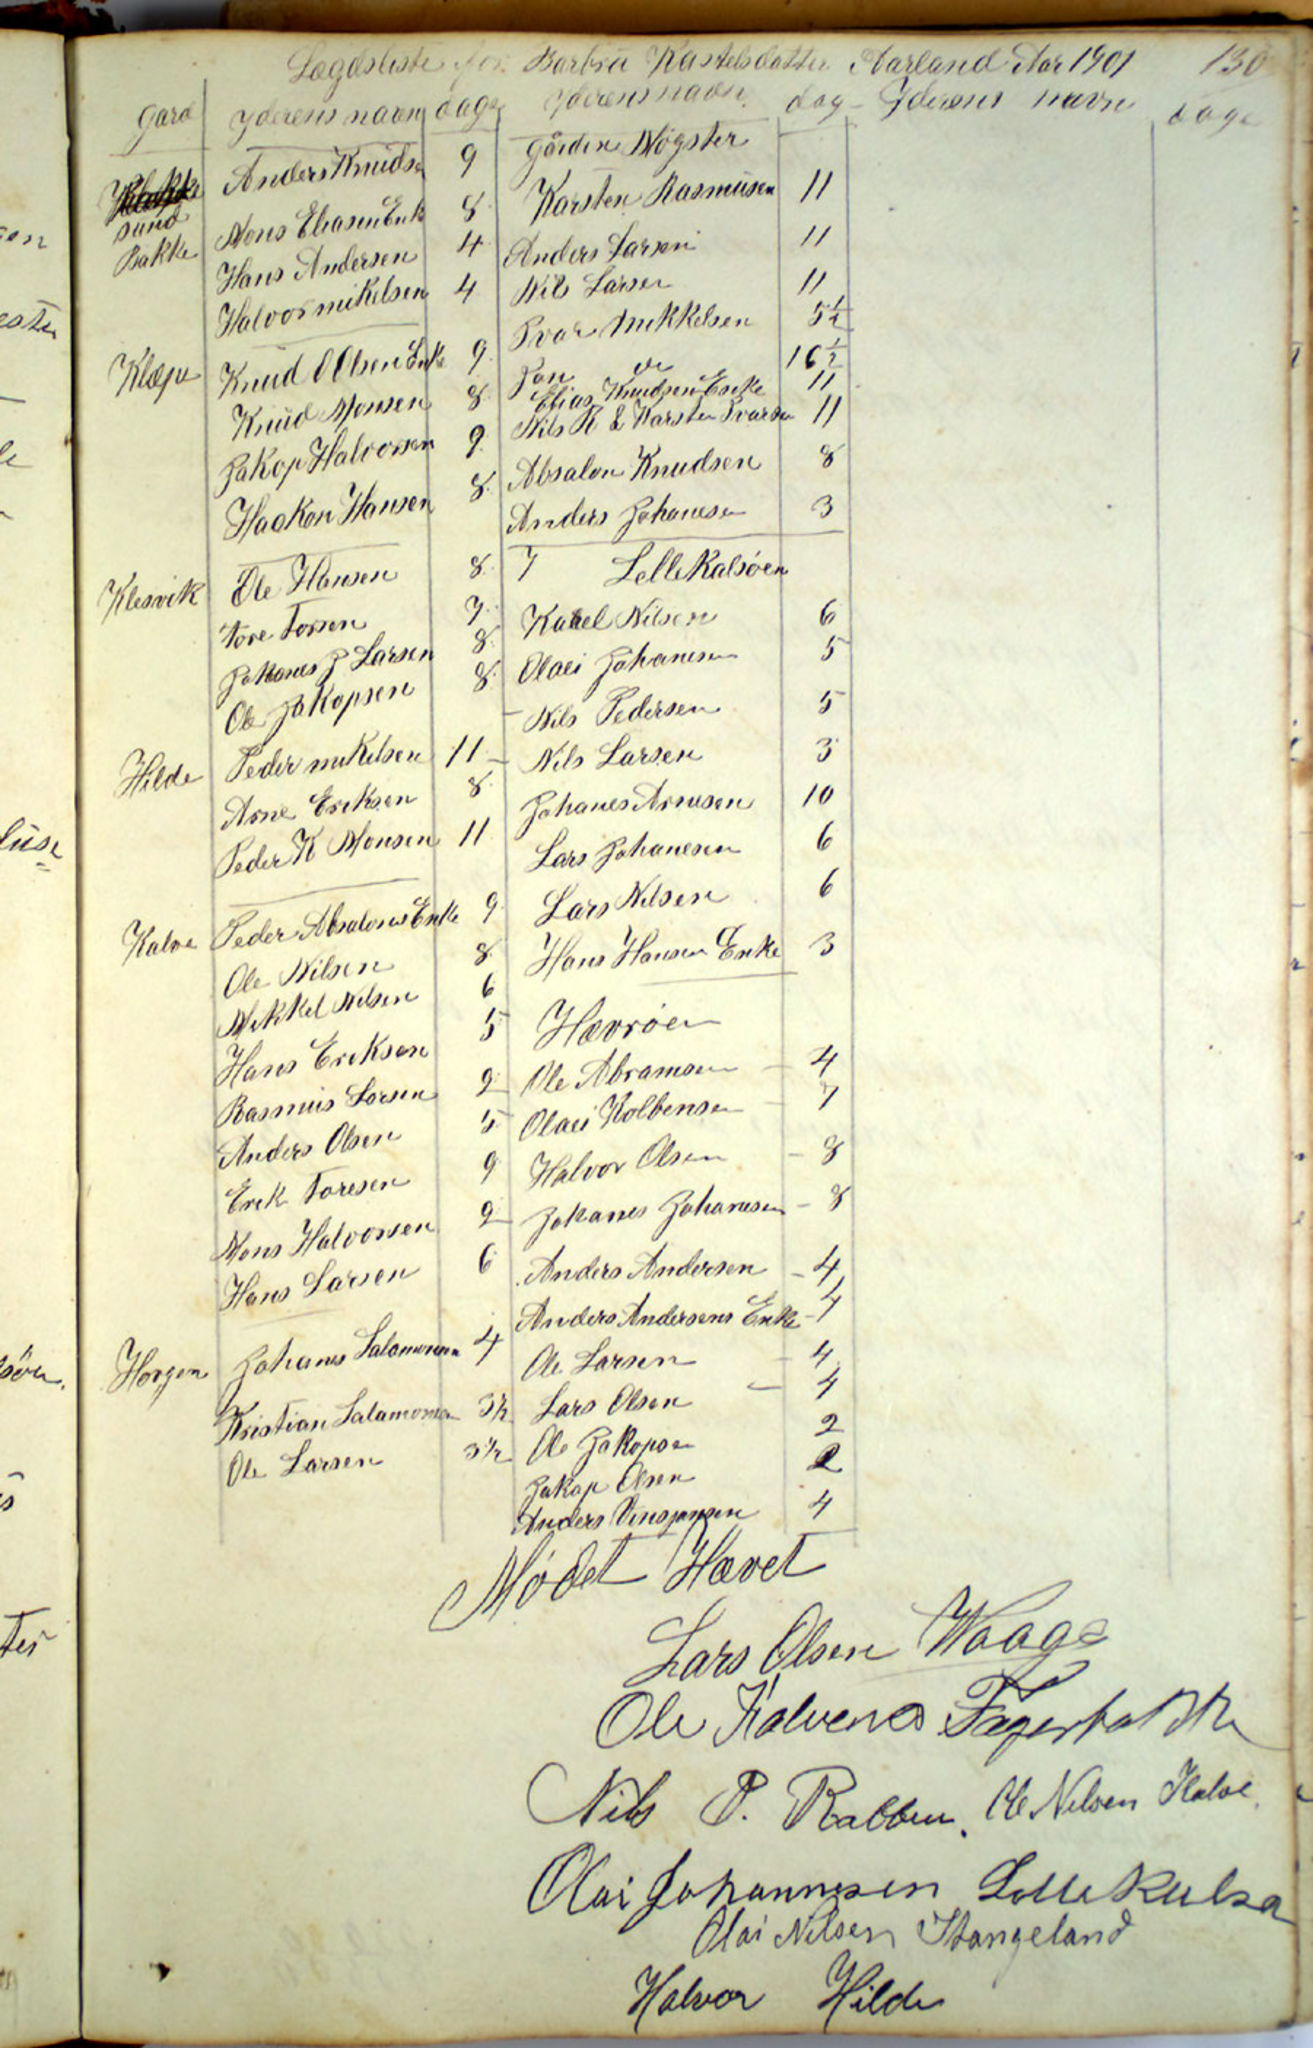 Lægdsliste for Barbra Kastelsdatter Aarland Aar 1901 130
Gard Yderens navn dage Yderens navn dag Yderens navn dage
Anders Knudsen 9 Gården Møgster
sund Mons Eliasen Enk 8 Karsten Rasmusen 11
Bakke Hans Andersen 4 Anders Larsen 11
Halvor mikelsen 4 Nils Larsen 11
Ivar Mikkelsen 5 1/2
Klæpe Knud O Olsen Enke 9 Jan do 16 1/2
Elias Knudsen Enke 11
Knud Monsen 8 Nils R & Karsten Ivarsen 11
Jakop Halvorsen 9 Absalon Knudsen 8
Haakon Hansen 8 Anders Johanesen 3
Klesvik Ole Hansen 8 7 Lellekalsøen
Tore Torsen 7 Kaael Nilsen 6
Johanes J Larsen 8 Olai Johanesen 5
Ole Jakopsen 8 Nils Pedersen 5
Hilde Peder mikelsen 11 Nils Larsen 3
Arne Eriksen 8 Johanes Arnesen 10
Peder K Monsen 11 Lars Johanesen 6
Kalve Peder Absalons Enke 9 Lars Nilsen 6
Ole Nilsen 8 Hans Hansen Enke 3
Mikkel Nilsen 6
Hans Eriksen 5 Hævrøen
Rasmus Larsen 2 Ole Abramsen 4
Anders Olsen 5 Olai Kolbensen 7
Erik Toresen 9 Halvor Olsen 8
Mons Halvorsen 2 Johanes Johanesen 8
Hans Larsen 6 Anders Andersen 4
Anders Andersens Enke 4
Horgen Johanes Salamonsen 4 Ole Larsen 4
Kristian Salamonsen 3 1/2 Lars Olsen 4
Ole Larsen 3 1/2 Ole Jakopsen 2
Jakop Olsen 2
Anders Vinsjansen 4
Mødet Hævet
Lars Olsen Waage
Ole Kalvenes Fagerbakke
Nils P. Rabben. Ole Nilsen Kalve.
Olai Johannesen Lillekalsø
Olai Nilsen Stangeland
Halvor Hilde